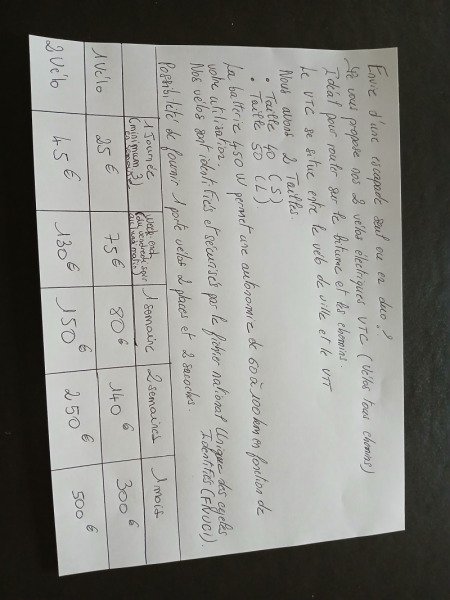 Envie d'une escapade seul ou en duo ?
Je vous propose nos 2 vélos électriques VTC (vélos tous chemins)
Idéal pour rouler sur le bitume et les chemins.
Le VTC se situe entre le vélo de ville et le VTT
Nous avons 2 Tailles:
• Taille 40 (S)
• Taille 50 (L)
La batterie 450 W permet une autonomie de 60 à 100 km en fonction de
votre utilisation.
Nos vélos sont identifiés et sécurisés par le fichier national Unique des cycles
Identifiés (FNUCI).
Possibilité de fournir 1 porte vélos 2 places et 2 sacoches
1 Journée (minimum 3) week end (du vendredi soir 1 semaine 2 semaines 1 mois
1 Vélo 25€ 75€ 80€ 140€ 300€
2 Vélo 45€ 130€ 150€ 250€ 500€